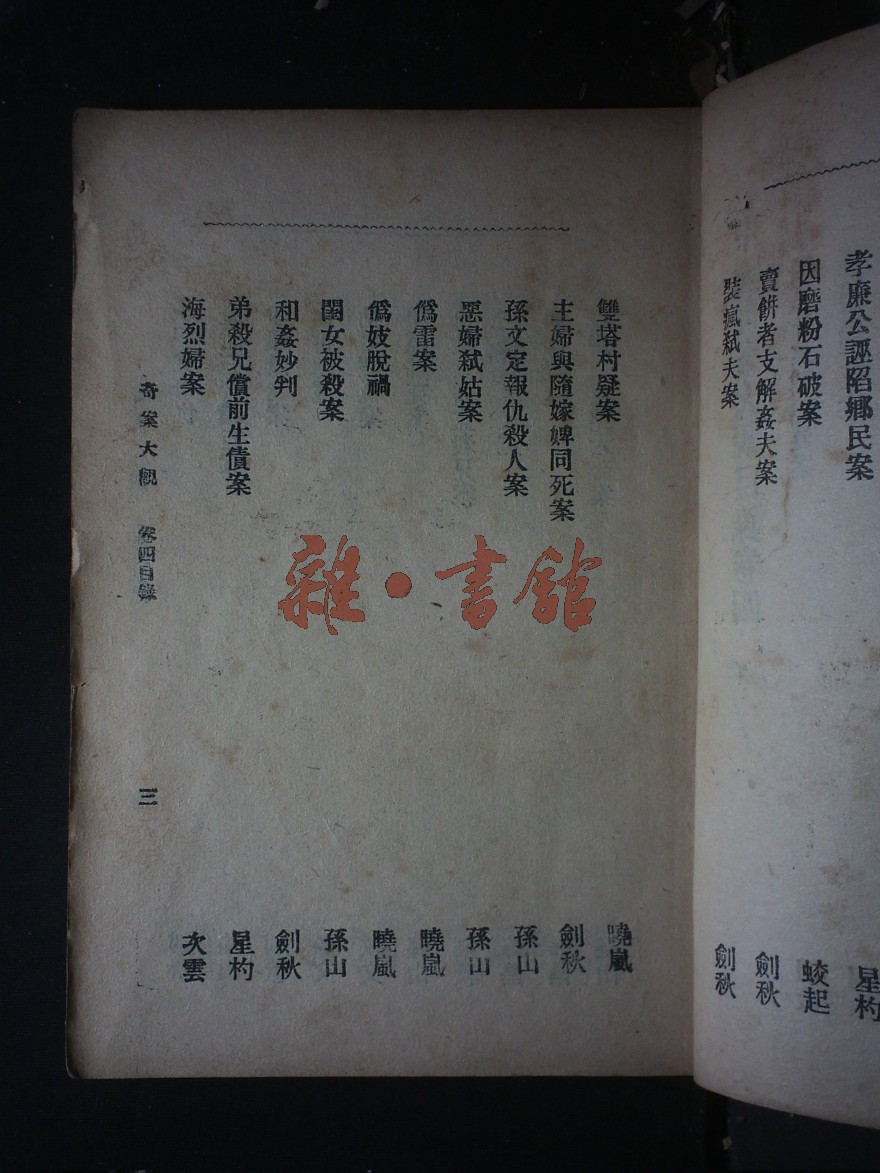 孝廉公誣陷鄉民案 星杓
因磨粉石破案 蛟起
賣餅者支解姦夫案 劍秋
裝瘋弑夫案 劍秋
雙塔村疑案 曉嵐
主婦與隨嫁婢同死案 劍秋
孫文定報仇殺人案 孫山
惡婦弑姑案 孫山
僞雷案 曉嵐
僞妓脫禍 曉嵐
閨女被殺案 孫山
和姦妙判 劍秋
弟殺兄償前生債案 星杓
海烈婦案 次雲
奇案大觀 卷四目錄 三
雜·書館